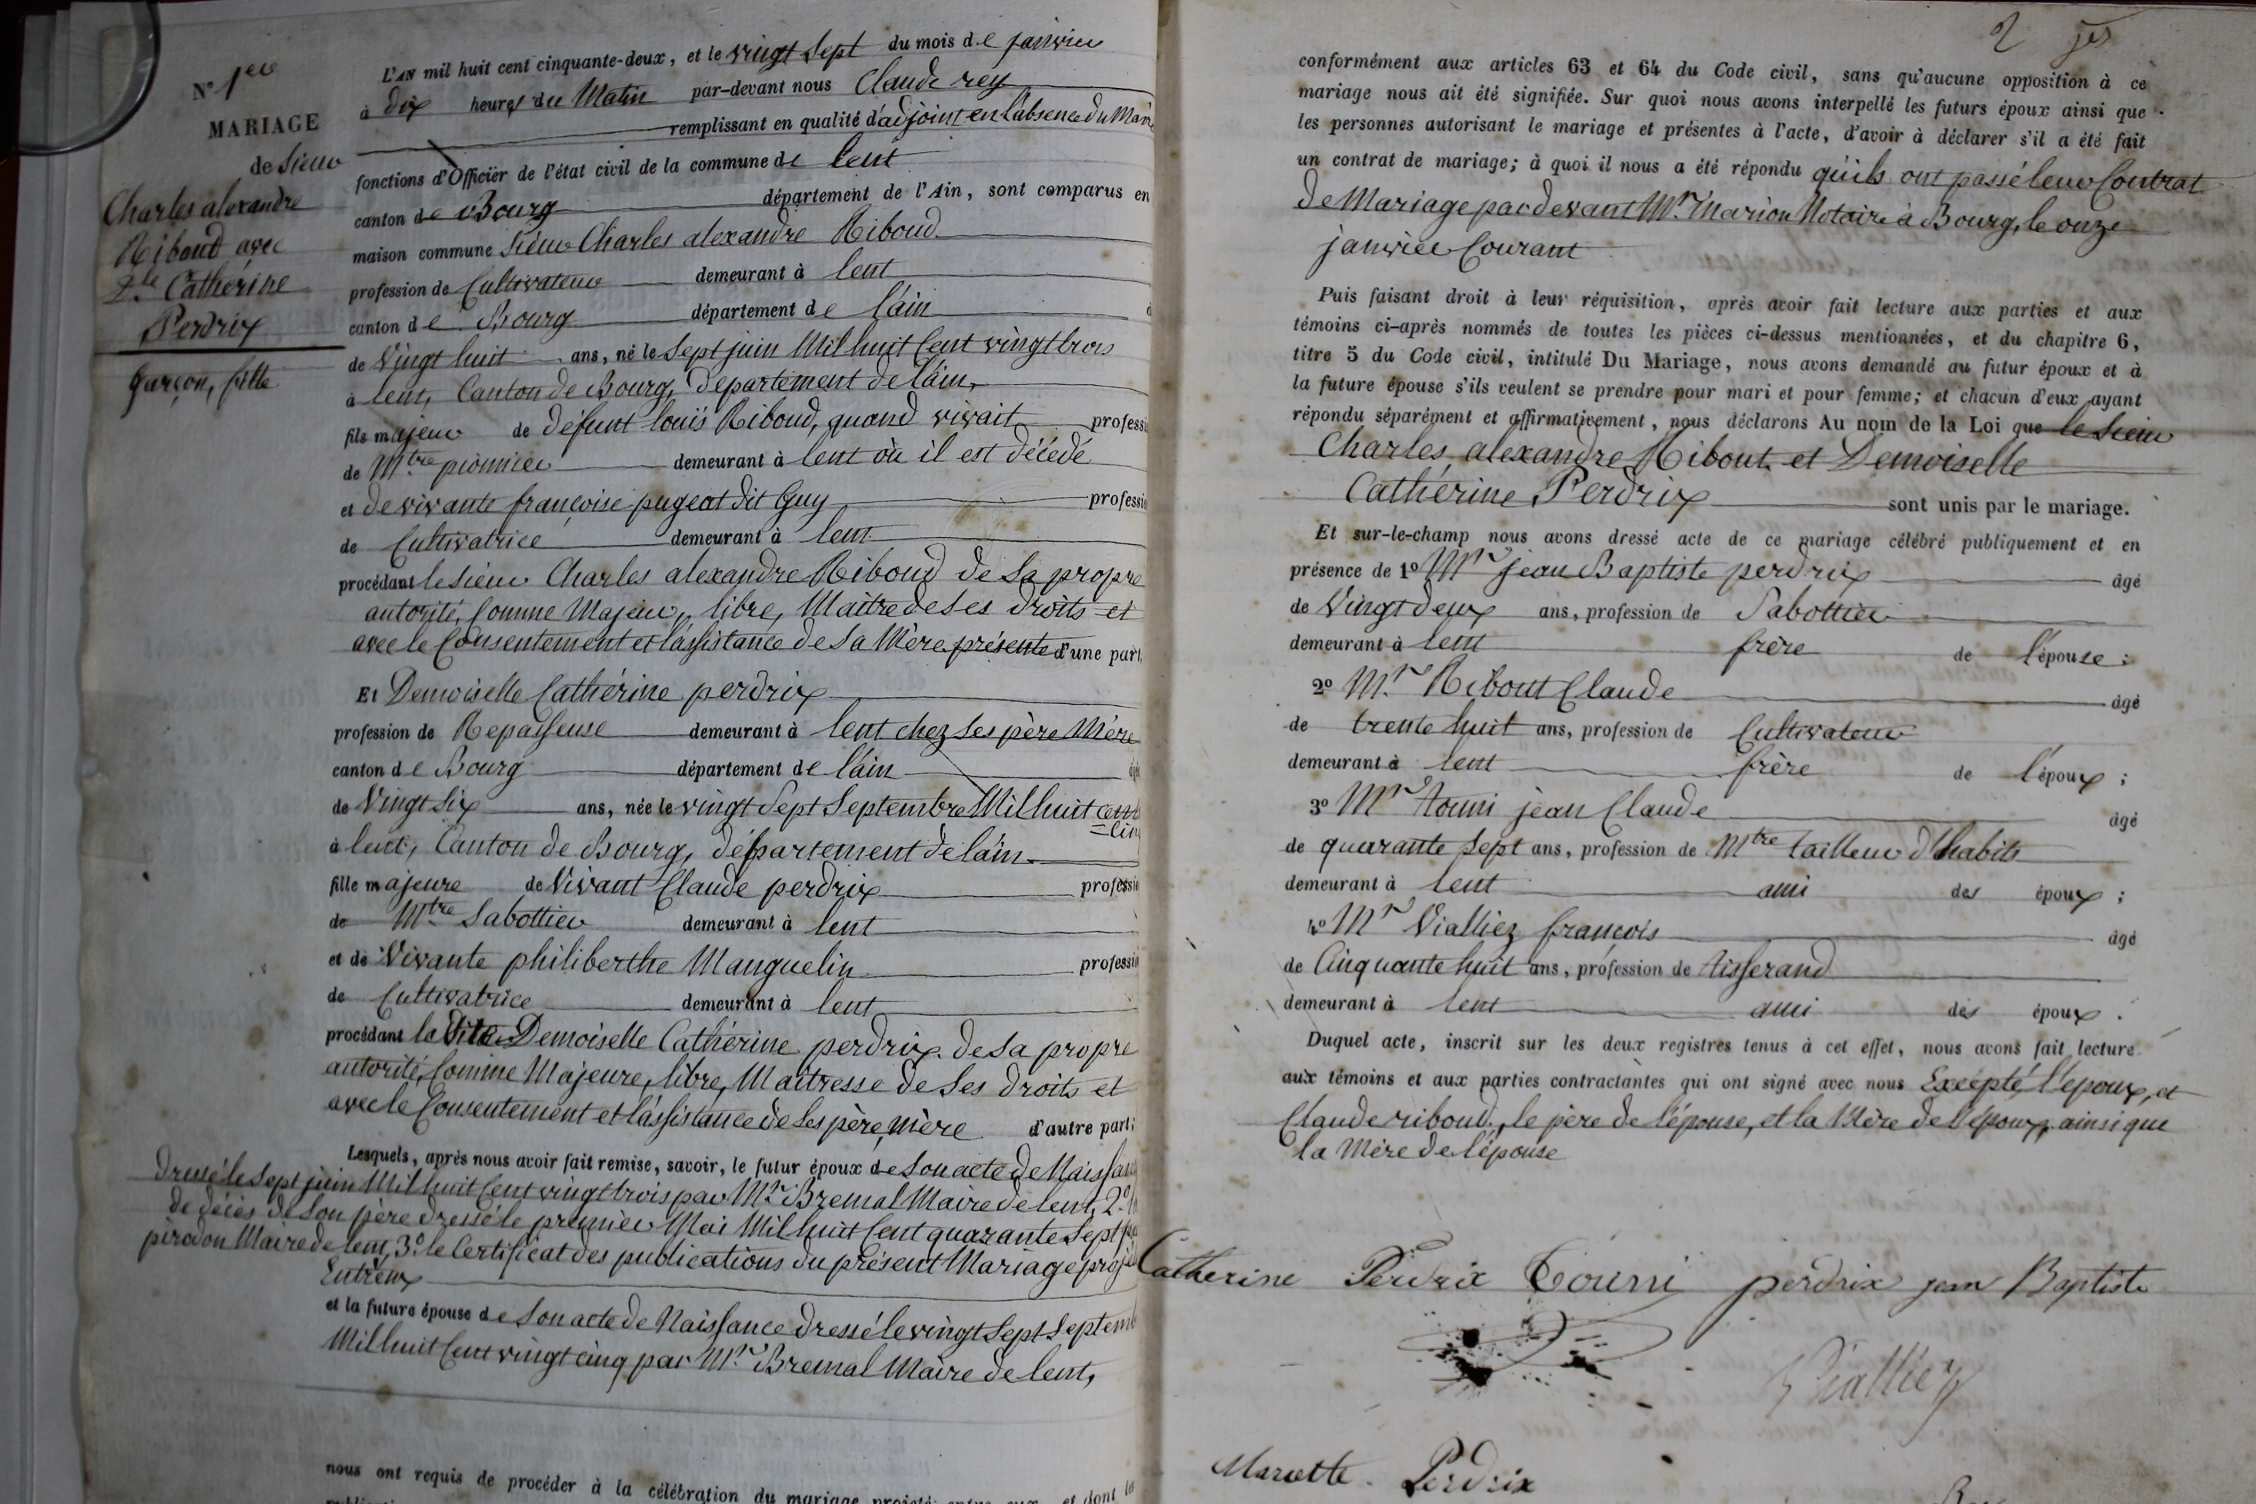 N° 1er
MARIAGE
de Sieur
Charles alexandre
Riboud avec
Dlle Cathérine
Perdrix
garçon, fille
L'AN mil huit cent cinquante-deux, et le vingt Sept du mois de janvier
à dix heures du Matin par-devant nous Claude rey
remplissant en qualité d'adjoint en l'absence du Maire
fonctions d'Officier de l'état civil de la commune de lent
canton de Bourg département de l'Ain, sont comparus en
maison commune Sieur Charles alexandre Riboud
profession de Cultivateur demeurant à lent
canton de Bourg département de l'ain
de Vingt huit ans, né le Sept juin Mil huit Cent vingt trois
à lent, Canton de Bourg, Département de l'ain,
fils majeur de défunt louis Riboud, quand vivait professi
de Mtre pionnier demeurant à lent où il est décédé
et de vivante françoise pugeat dit Guy professi
de Cultivatrice demeurant à lent
procédant le Sieur Charles alexandre Riboud de Sa propre
autorité, Comme Majeur, libre, Maître de Ses droits et
avec le Consentement et l'assistance de Sa Mère présente d'une part,
Et Demoiselle Cathérine perdrix
profession de Repasseuse demeurant à lent chez Ses père Mère
canton de Bourg département de l'ain
de Vingt Six ans, née le vingt Sept Septembre Mil huit cent
à lent, Canton de Bourg, département de l'ain
fille majeure de Vivant Claude perdrix professi
de Mtre Sabottier demeurant à lent
et de Vivante philiberthe Manguelin professi
de Cultivatrice demeurant à lent
procédant la dite Demoiselle Cathérine perdrix de Sa propre
autorité, Comme Majeure, libre, Maîtresse de Ses droits et
avec le Consentement et l'assistance de Ses père, mère d'autre part;
Lesquels, après nous avoir fait remise, savoir, le futur époux de Son acte de Naissance
dressé le Sept juin Mil huit Cent vingt trois par Mr Bremal Maire de lent, 2°
de décès de Son père dressé le premier Mai Mil huit Cent quarante Sept
pirodon Maire de lent, 3° le Certificat des publications du présent Mariage
Entreux
et la future épouse de Son acte de Naissance dressé le vingt Sept Septemb
Mil huit Cent vingt cinq par Mr Bremal Maire de lent,
nous ont requis de procéder à la célébration du mariage projeté entre eux, et dont la
2 
conformément aux articles 63 et 64 du Code civil, sans qu'aucune opposition à ce
mariage nous ait été signifiée. Sur quoi nous avons interpellé les futurs époux ainsi que
les personnes autorisant le mariage et présentes à l'acte, d'avoir à déclarer s'il a été fait
un contrat de mariage; à quoi il nous a été répondu qu'ils ont passé leur Contrat
de Mariage pardevant Mr Marion Notaire à Bourg, le onze
janvier Courant
Puis faisant droit à leur réquisition, après avoir fait lecture aux parties et aux
témoins ci-après nommés de toutes les pièces ci-dessus mentionnées, et du chapitre 6,
titre 5 du Code civil, intitulé Du Mariage, nous avons demandé au futur époux et à
la future épouse s'ils veulent se prendre pour mari et pour femme; et chacun d'eux ayant
répondu séparément et affirmativement, nous déclarons Au nom de la Loi que le Sieur
Charles alexandre Ribout et Demoiselle
Cathérine Perdrix sont unis par le mariage.
Et sur-le-champ nous avons dressé acte de ce mariage célébré publiquement et en
présence de 1° Mr jean Baptiste perdrix âgé
de Vingt deux ans, profession de Sabottier
demeurant à lent frère de l'épouse;
2° Mr Ribout Claude âgé
de trente huit ans, profession de Cultivateur
demeurant à lent frère de l'époux;
3° Mr tourni jean Claude âgé
de quarante Sept ans, profession de Mtre tailleur d'habits
demeurant à lent ami des époux;
4° Mr Vialliez françois âgé
de Cinquante huit ans, profession de tisserand
demeurant à lent ami des époux.
Duquel acte, inscrit sur les deux registres tenus à cet effet, nous avons fait lecture
aux témoins et aux parties contractantes qui ont signé avec nous Excepté, l'époux, et
Claude riboud, le père de l'épouse, et la Mère de l'époux, ainsi que
la Mère de l'épouse
Catherine Perdrix Tourni perdrix jean Baptiste
Vialliez
Mariette Perdrix